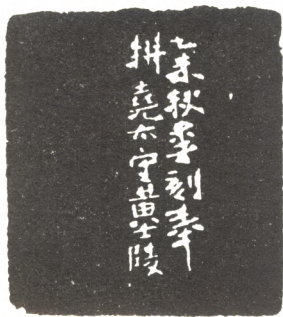 乙未秋季刻奉
拼堯太守黃士陵